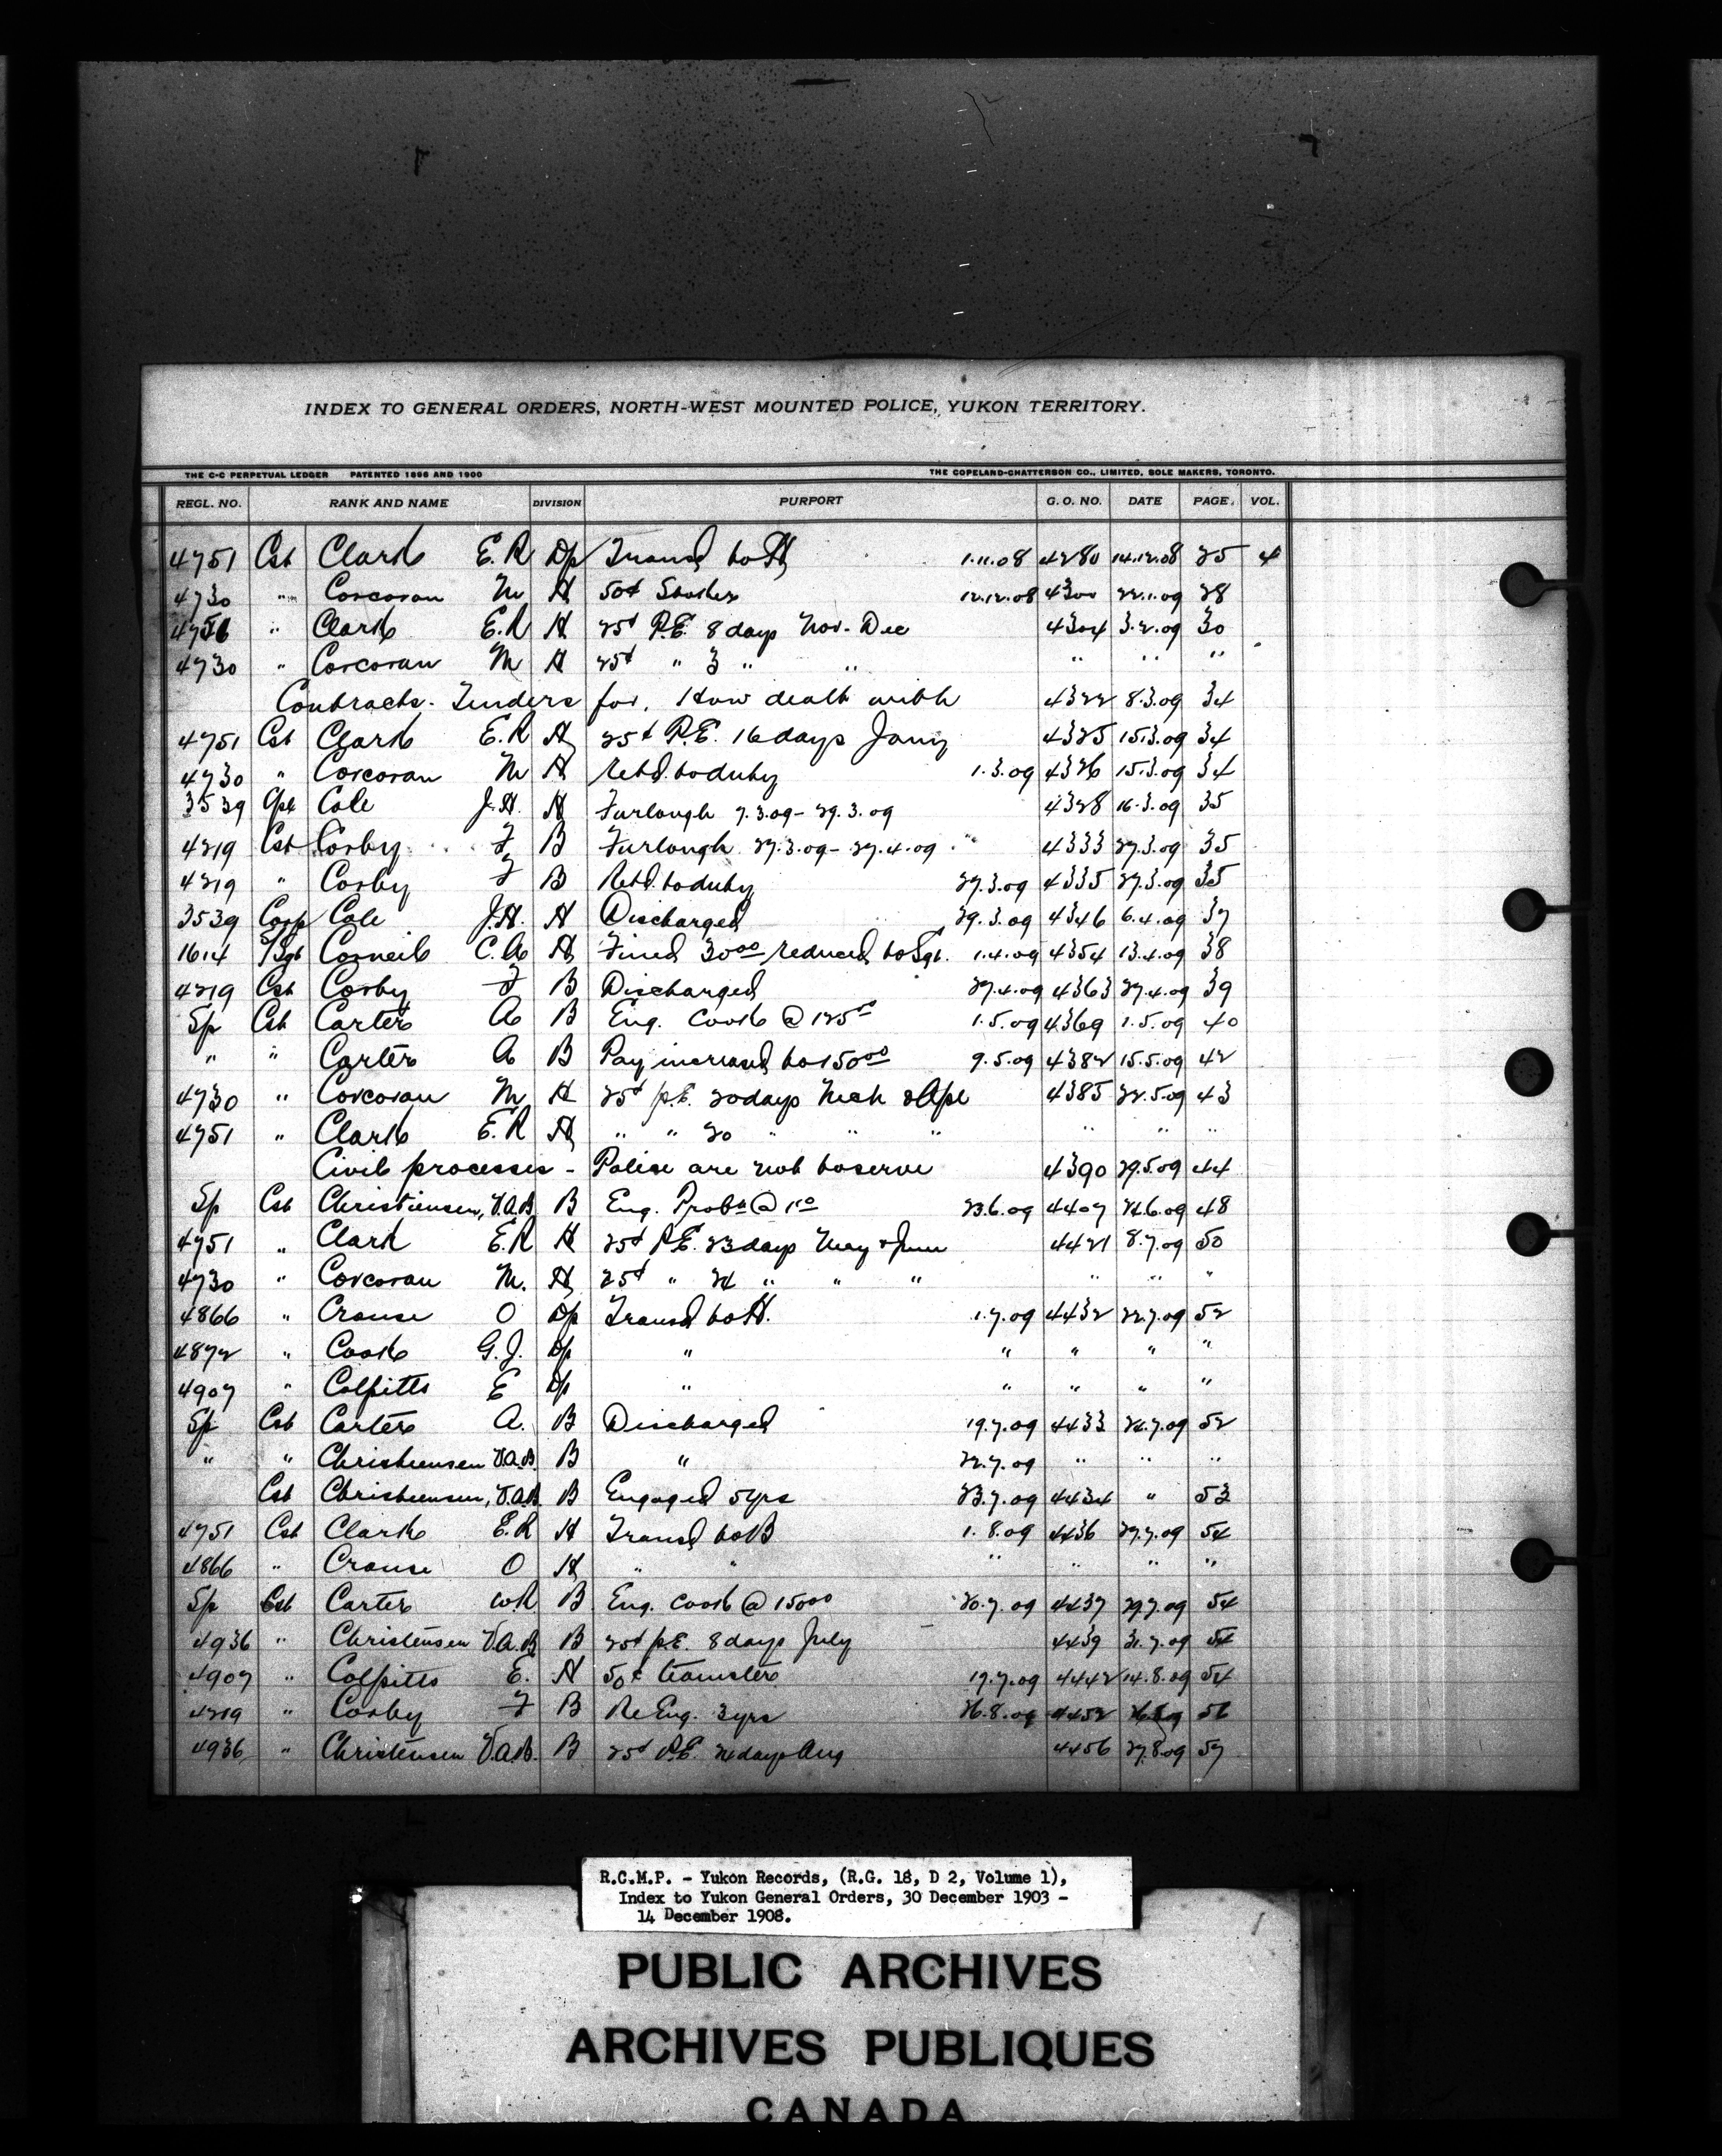 INDEX TO GENERAL ORDERS, NORTH-WEST MOUNTED POLICE, YUKON TERRITORY.
THE C-C PERPETUAL LEDGER PATENTED 1896 AND 1900 THE COPELAND-CHATTERSON CO., LIMITED, SOLE MAKERS, TORONTO.
REGL. NO. RANK AND NAME DIVISION PURPORT G. O. NO. DATE PAGE. VOL.
4751 Cst Clark E.R Dp Transd to H 1.11.08 4280 14.12.08 25 4
4730 " Corcoran M H 50¢ Stoker 12.12.08 4300 22.1.09 28
4751 " Clark E.R H 25¢ P.E. 8 days Nov - Dec 4304 3.2.09 30
4730 " Corcoran M H 25¢ " 3 " " " " "
Contracts - Tenders for, How dealt with 4322 8.3.09 34
4751 Cst Clark E.R H 25¢ P.E. 16 days Jany 4325 15.3.09 34
4730 " Corcoran M H Retd. to duty 1.3.09 4326 15.3.09 34
3539 Cpl Cole J.H. H Furlough 7.3.09 - 29.3.09 4328 16.3.09 35
4219 Cst Corby F B Furlough 27.3.09 - 27.4.09 4333 27.3.09 35
4219 " Corby F B Retd. to duty 27.3.09 4335 27.3.09 35
3539 Corp Cole J.H. H Discharged 29.3.09 4346 6.4.09 37
1614 S/Sgt Corneil C.A H Fined 30 00 reduced to Sgt. 1.4.09 4354 13.4.09 38
4219 Cst Corby F B Discharged 27.4.09 4363 27.4.09 39
Sp Cst Carter A B Eng. Cook @ 125 1.5.09 4369 1.5.09 40
" " Carter A B Pay increased to 150 00 9.5.09 4382 15.5.09 42
4730 " Corcoran M H 25¢ p.E. 20 days Mch & Apl 4385 22.5.09 43
4751 " Clark E.R H " " 20 " " " " " "
Civil processes - Police are not to serve 4390 29.5.09 44
Sp Cst Christiensen, V.A.B. B Eng. Probn @ 1 00 23.6.09 4407 24.6.09 48
4751 " Clark E.R H 25¢ P.E. 23 days May & June 4421 8.7.09 50
4730 " Corcoran M. H 25¢ " 24 " " " " " "
4866 " Crouse O Dp Transd to H. 1.7.09 4432 22.7.09 52
4872 " Cook G.J. Dp " " " " "
4907 " Colpitts E Dp " " " " "
Sp Cst Carter A. B Discharged 19.7.09 4433 24.7.09 52
" " Christeensen V.A.B. B " 22.7.09 " " "
Cst Christeensen, V.A.B. B Engaged 5 yrs 23.7.09 4434 " 53
4751 Cst Clark E.R H Transd to B 1.8.09 4436 27.7.09 54
4866 " Crouse O H " " " " " "
Sp Cst Carter W.R B Eng. Cook @ 150 00 20.7.09 4437 29.7.09 54
4936 " Christensen V.A.B. B 25¢ p.E. 8 days July 4439 31.7.09 54
4907 " Colpitts E. H 50¢ teamster 17.7.09 4442 14.8.09 54
4219 " Corby F B Re Eng. 3 yrs 26.8.09 4452 56
4936 " Christensen V.A.B. B 25¢ P.E. 24 days Aug 4456 27.8.09 57
R.C.M.P. - Yukon Records, (R.G. 18, D 2, Volume 1),
Index to Yukon General Orders, 30 December 1903 -
14 December 1908.
PUBLIC ARCHIVES
ARCHIVES PUBLIQUES
CANADA